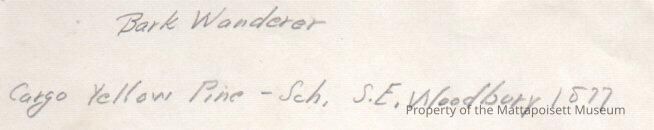 Bark Wanderer
Cargo Yellow Pine - Sch. S.E. Woodbury 1877
Property of the Mattapoisett Museum